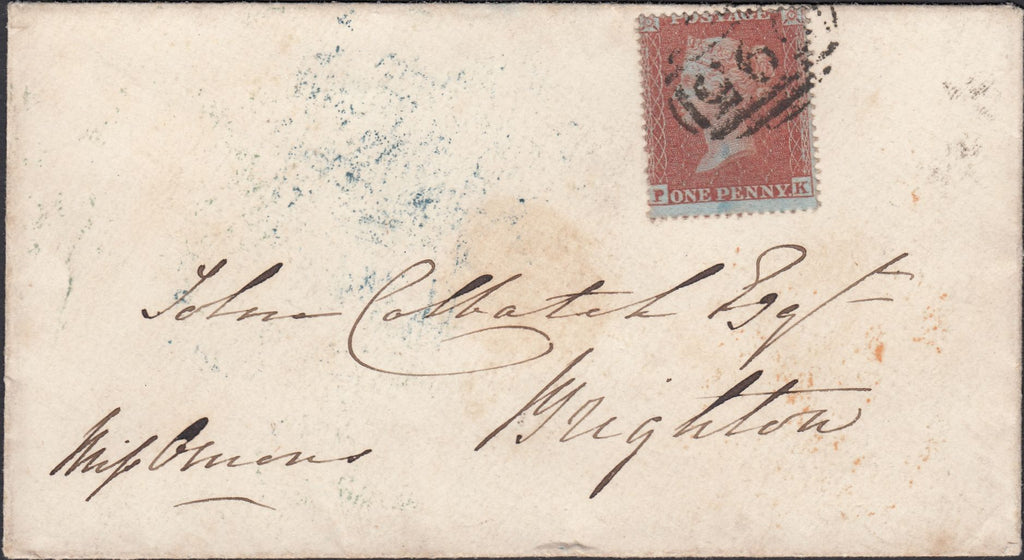 POSTAGE
P ONE PENNY K
John Colbatch Esqr
Brighton
Miss